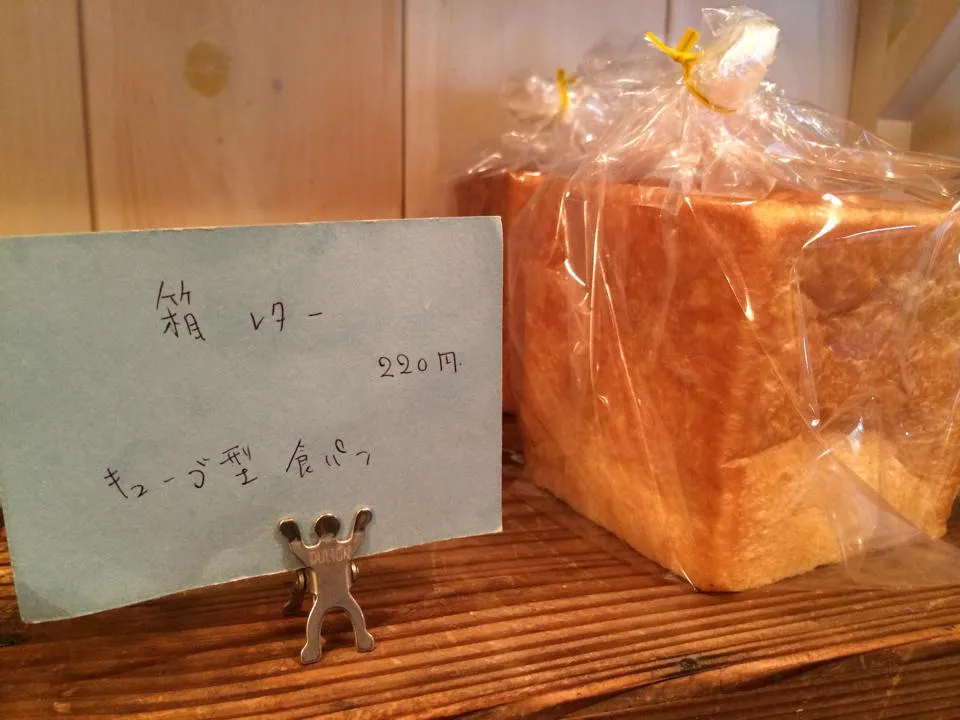 箱 レター
220円.
キューブ型 食パン
DULTON